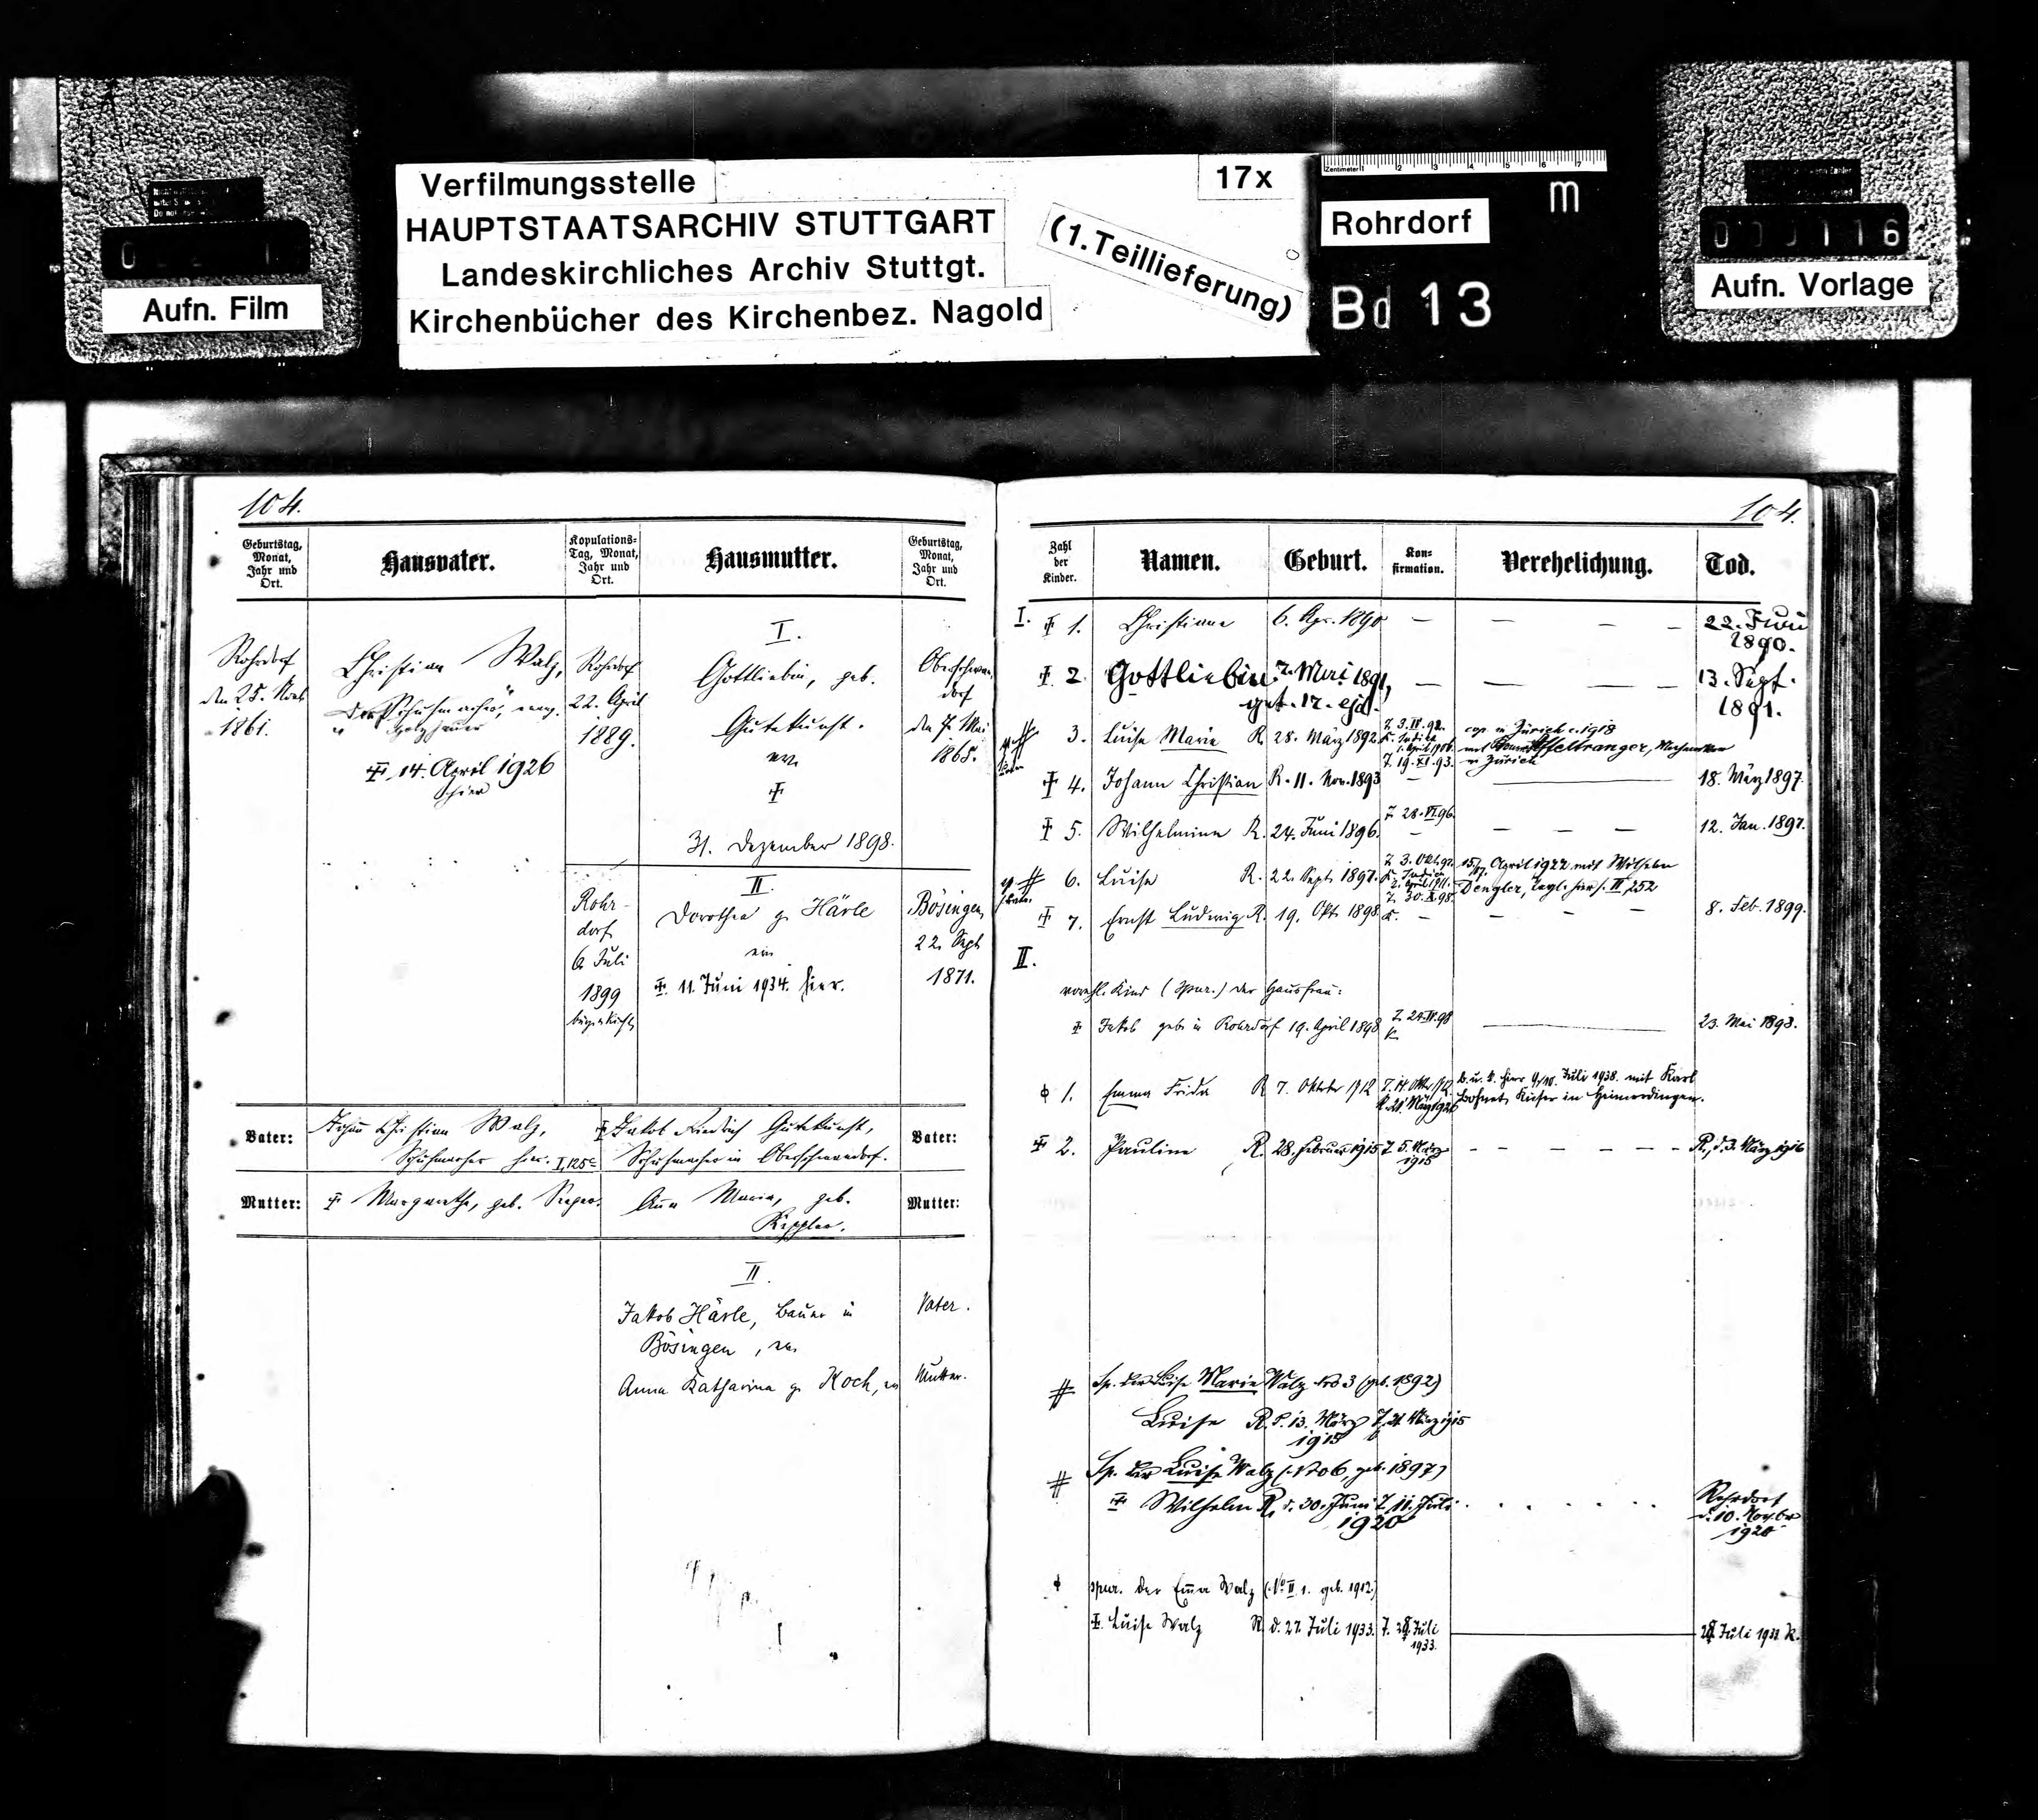 Verfilmungsstelle
HAUPTSTAATSARCHIV STUTTGART
Landeskirchliches Archiv Stuttgt.
Kirchenbücher des Kirchenbez. Nagold
(1.Teillieferung)
17x
Zentimeter 1 2 3 4 5 6 7
Rohrdorf
m
Bd 13
Aufn. Film
000116
Aufn. Vorlage
104.
Geburtstag, Monat, Jahr und Ort.
Hausvater.
Kopulations-Tag, Monat, Jahr und Ort.
Hausmutter.
Geburtstag, Monat, Jahr und Ort.
Rohrdorf
den 25. Novb
1861.
Christian Walz,
Schuhmacher,
14. April 1926
hier
Rohrdorf
22. April
1889.
I.
Gottliebin, geb.
Gutekunst.
31. Dezember 1898.
Oberschwandorf
den 7. Mai
1865.
Rohrdorf
6. Juli
1899
II.
Dorothea g. Härle
11. Juni 1934. hier.
Bösingen,
22. Sept
1871.
Vater:
Johann Christian Walz,
Schuhmacher hier. I,125
Jakob Friedrich Gutekunst,
Schuhmacher in Oberschwandorf.
Vater:
Mutter:
Margarethe, geb.
Anna Maria, geb.
Keppler.
Mutter:
II.
Jakob Härle, Bauer in
Bösingen,
Vater.
Anna Katharina g. Koch,
Mutter.
104.
Zahl der Kinder.
Namen.
Geburt.
Konfirmation.
Verehelichung.
Tod.
I.
1. Christiane 6. Apr. 1890 — — — — 22. Juni 1890.
2. Gottliebin 7. Mai 1891, get. 17. ejd. — — — — 13. Sept. 1891.
3. Luise Marie R. 28. März 1892. cop. in Zürich 1918
mit Affeltranger, in Zürich
4. Johann Christian R. 11. Nov. 1893 T. 19. XI. 93. — 18. März 1897.
5. Wilhelmine R. 24. Juni 1896. T. 28. VI. 96. — — — 12. Jan. 1897.
6. Luise R. 22. Sept. 1897. April 1922 mit Wilhelm
Dengler, hier s. II, 252
7. Ernst Ludwig R. 19. Okt. 1898. T. 30. X. 98. — — — 8. Feb. 1899.
II.
vorehl. Kind (spur.) der Hausfrau:
Jakob geb. in Rohrdorf 19. April 1898 T. 24. IV. 98 — 23. Mai 1898.
1. Emma Frida R. 7. Oktober 1912 T. 14. Okt. 1912.
K. 21. März 1926
hier 9/10. Juli 1938. mit Karl
in Heimerdingen.
2. Pauline R. 28. Februar 1915 T. 5. März 1915 — — — — R., d. 3. März 1916
Sp. der Luise Marie Walz No 3 (geb. 1892)
Luise R. d. 13. März 1915 T. 21. März 1915
Sp. der Luise Walz (No 6, geb. 1897)
Wilhelm R. d. 30. Juni T. 11. Juli 1920
Rohrdorf
d. 10. Novbr
1920
spur. der Emma Walz (No II 1. geb. 1912.)
Luise Walz R. d. 27. Juli 1933. T. Juli 1933. Juli 1933. R.